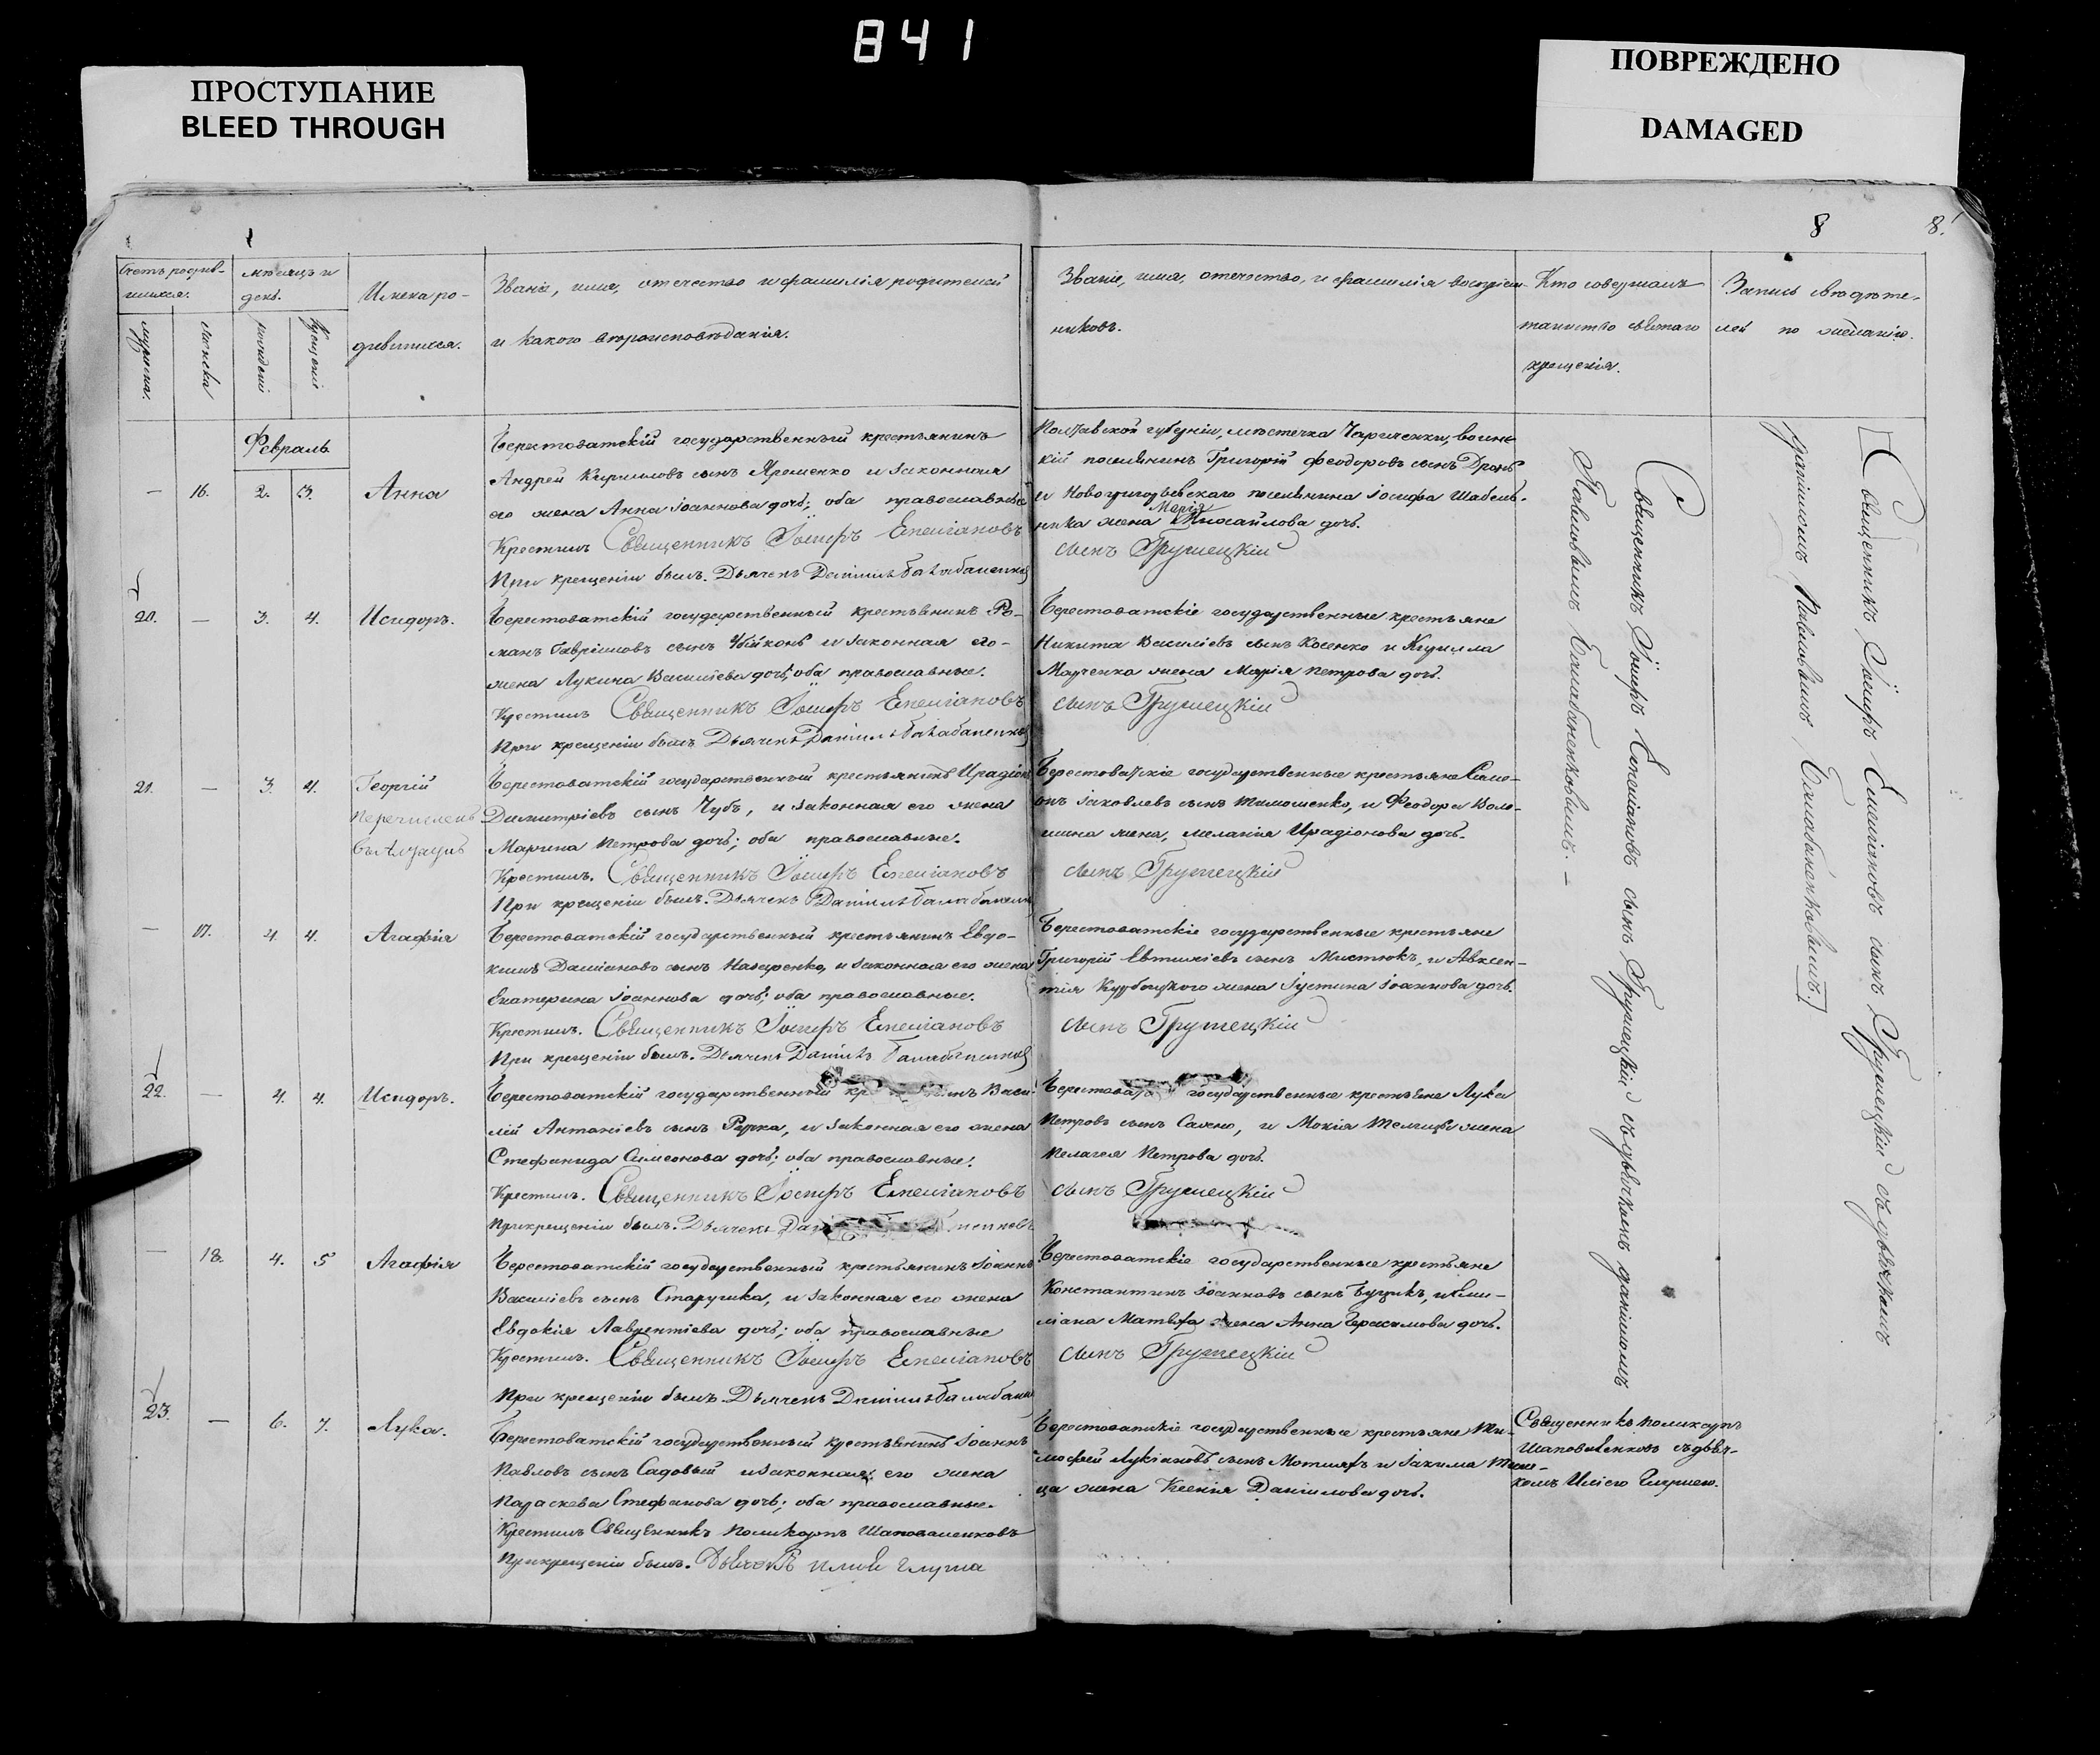 841
ПРОСТУПАНИЕ
BLEED THROUGH
ПОВРЕЖДЕНО
DAMAGED
8 8.
Счетъ родив-
шихся.
мужеска.
женска
мѣсяцъ и
день.
рожденiя
крещенiя
Имена ро-
дившихся.
Званiе, имя, отечество и фамилiя родителей
и какого вѣроисповѣданiя.
Званiе, имя, отечество, и фамилiя воспрiем-
никовъ.
Кто совершалъ
таинство святаго
крещенiя.
Запись свидѣте-
лей по желанiю.
Февраль
— 16. 2. 3. Анна
Берестоватскiй государственный крестьянинъ
Андрей Кирилловъ сынъ Яременко и законная
его жена Анна Iоаннова дочь; оба православные
Крестилъ Священникъ Iосифъ Емелiановъ
При крещенiи былъ. Дьячекъ Данiилъ Балабаненков
Полтавской губернiи, мѣстечка Царичанки, воинс
кiй поселянинъ Григорiй Феодоровъ сынъ Дронь
и Новогригорьевскаго поселянина Iосифа Шабель-
ника жена Марiя Михайлова дочь.
сынъ Грушецкiй
20. — 3. 4. Исидоръ.
Берестоватскiй государственный крестьянинъ Ро-
манъ Гаврiиловъ сынъ Убийконь и законная его-
жена Лукина Василiева дочь, оба православные.
Крестилъ Священникъ Iосифъ Емелiановъ
При крещенiи былъ Дьячекъ Данiилъ Балабаненков
Берестоватскiе государственные крестьяне
Никита Василiевъ сынъ Косенко и Кирилла
Марченка жена Марiя Петрова дочь.
сынъ Грушецкiй
21. — 3. 4. Георгiй
Перечисленъ
Берестоватскiй государственный крестьянинъ Ирадiонъ
Димитрiевъ сынъ Чубъ, и законная его жена
Марина Петрова дочь; оба православные.
Крестилъ. Священникъ Iосифъ Емелiановъ
При крещенiи былъ. Дьячекъ Данiилъ Балабаненк
Берестоватскiе государственные крестьяне Симе-
онъ Iаковлевъ сынъ Тимошенко, и Феодора Воло-
шина жена, Меланiя Ирадiонова дочь.
сынъ Грушецкiй
— 17. 4. 4. Агафiя
Берестоватскiй государственный крестьянинъ Евдо-
кимъ Дамiановъ сынъ Назаренко, и законная его жена
Екатерина Iоаннова дочь; оба православные.
Крестилъ. Священникъ Iосифъ Емелiановъ
При крещенiи былъ. Дьячекъ Данiилъ Балабаненков
Берестоватскiе государственные крестьяне
Григорiй Евтихiевъ сынъ Мистюкъ, и Авксен-
тiя жена Iустина Iоаннова дочь.
сынъ Грушецкiй
22. — 4. 4. Исидоръ.
Берестоватскiй государственный кр Васи-
лiй Антонiевъ сынъ Рурка, и законная его жена
Стефанида Симеонова дочь; оба православные.
Крестилъ. Священникъ Iосифъ Емелiановъ
При крещенiи былъ. Дьячекъ Дан ненковъ
Берестоват государственные крестьяне Лука
Петровъ сынъ Сахно, и Мокiя жена
Пелагея Петрова дочь.
сынъ Грушецкiй
— 18. 4. 5 Агафiя
Берестоватскiй государственный крестьянинъ Iоаннъ
Василiевъ сынъ Старушка, и законная его жена
Евдокiя Лаврентiева дочь; оба православные
Крестилъ. Священникъ Iосифъ Емелiановъ
При крещенiи былъ. Дьячекъ Данiилъ Балабанен
Берестоватскiе государственные крестьяне
Константинъ Iоанновъ сынъ Буцикъ, и Еми-
лiана Матвѣя жена Анна Герасимова дочь.
сынъ Грушецкiй
23. — 6. 7. Лука.
Берестоватскiй государственный крестьянинъ Iоаннъ
Павловъ сынъ Садовый и законная его жена
Параскева Стефанова дочь; оба православные.
Крестилъ Священникъ Поликарпъ Шаповаленковъ
При крещенiи былъ. Дьячекъ Илiй Глуша
Берестоватскiе государственные крестьяне Ти-
мофей Лукiановъ сынъ Мотляхъ и Iакима
жена Ксенiя Данiилова дочь.
Священникъ Поликарпъ
Шаповаленковъ съ дьяч-
комъ Илiею Глушею.
Священникъ Iосифъ Емелiановъ сынъ Грушецкiй съ дьячкомъ Данiиломъ
Павловымъ Балабаненковымъ. —
Священникъ Iосифъ Емелiановъ сынъ Грушецкiй съ дьячкомъ
Данiиломъ Павловымъ Балабаненковымъ.